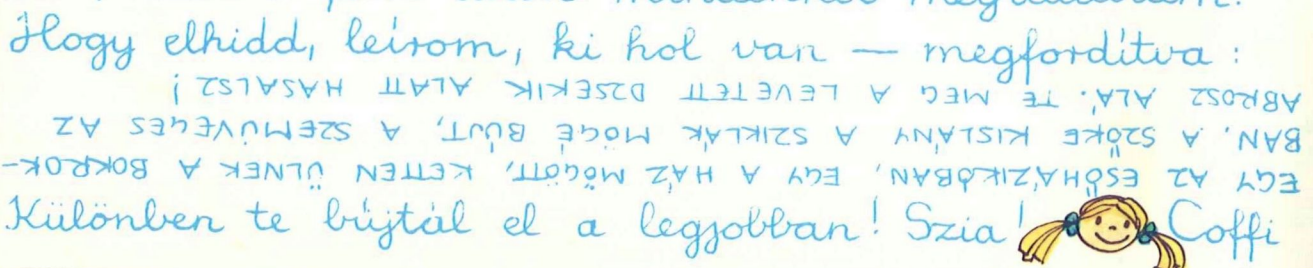 Hogy elhidd, leírom, ki hol van — megfordítva :
EGY AZ ESŐHÁZIKÓBAN, EGY A HÁZ MÖGÖTT, KETTEN ÜLNEK A BOKROK-
BAN. A SZŐKE KISLÁNY A SZIKLÁK MÖGÉ BÚJT, A SZEMÜVEGES AZ
ABROSZ ALÁ. TE MEG A LEVETETT DZSEKIK ALATT HASALSZ!
Különben te bújtál el a legjobban! Szia! Coffi